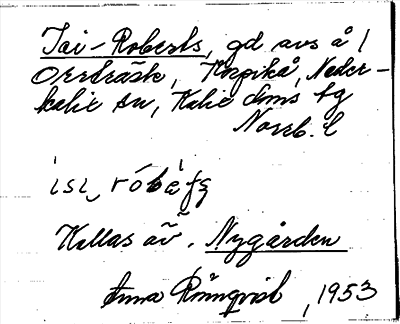 Isi-Roberts, gd avs å 1
Orrträsk, Korpikå, Neder-
kalix sn, Kalix dms tg
Norrb. l
Kallas äv. Nygården
Anna Rönnqvist, 1953